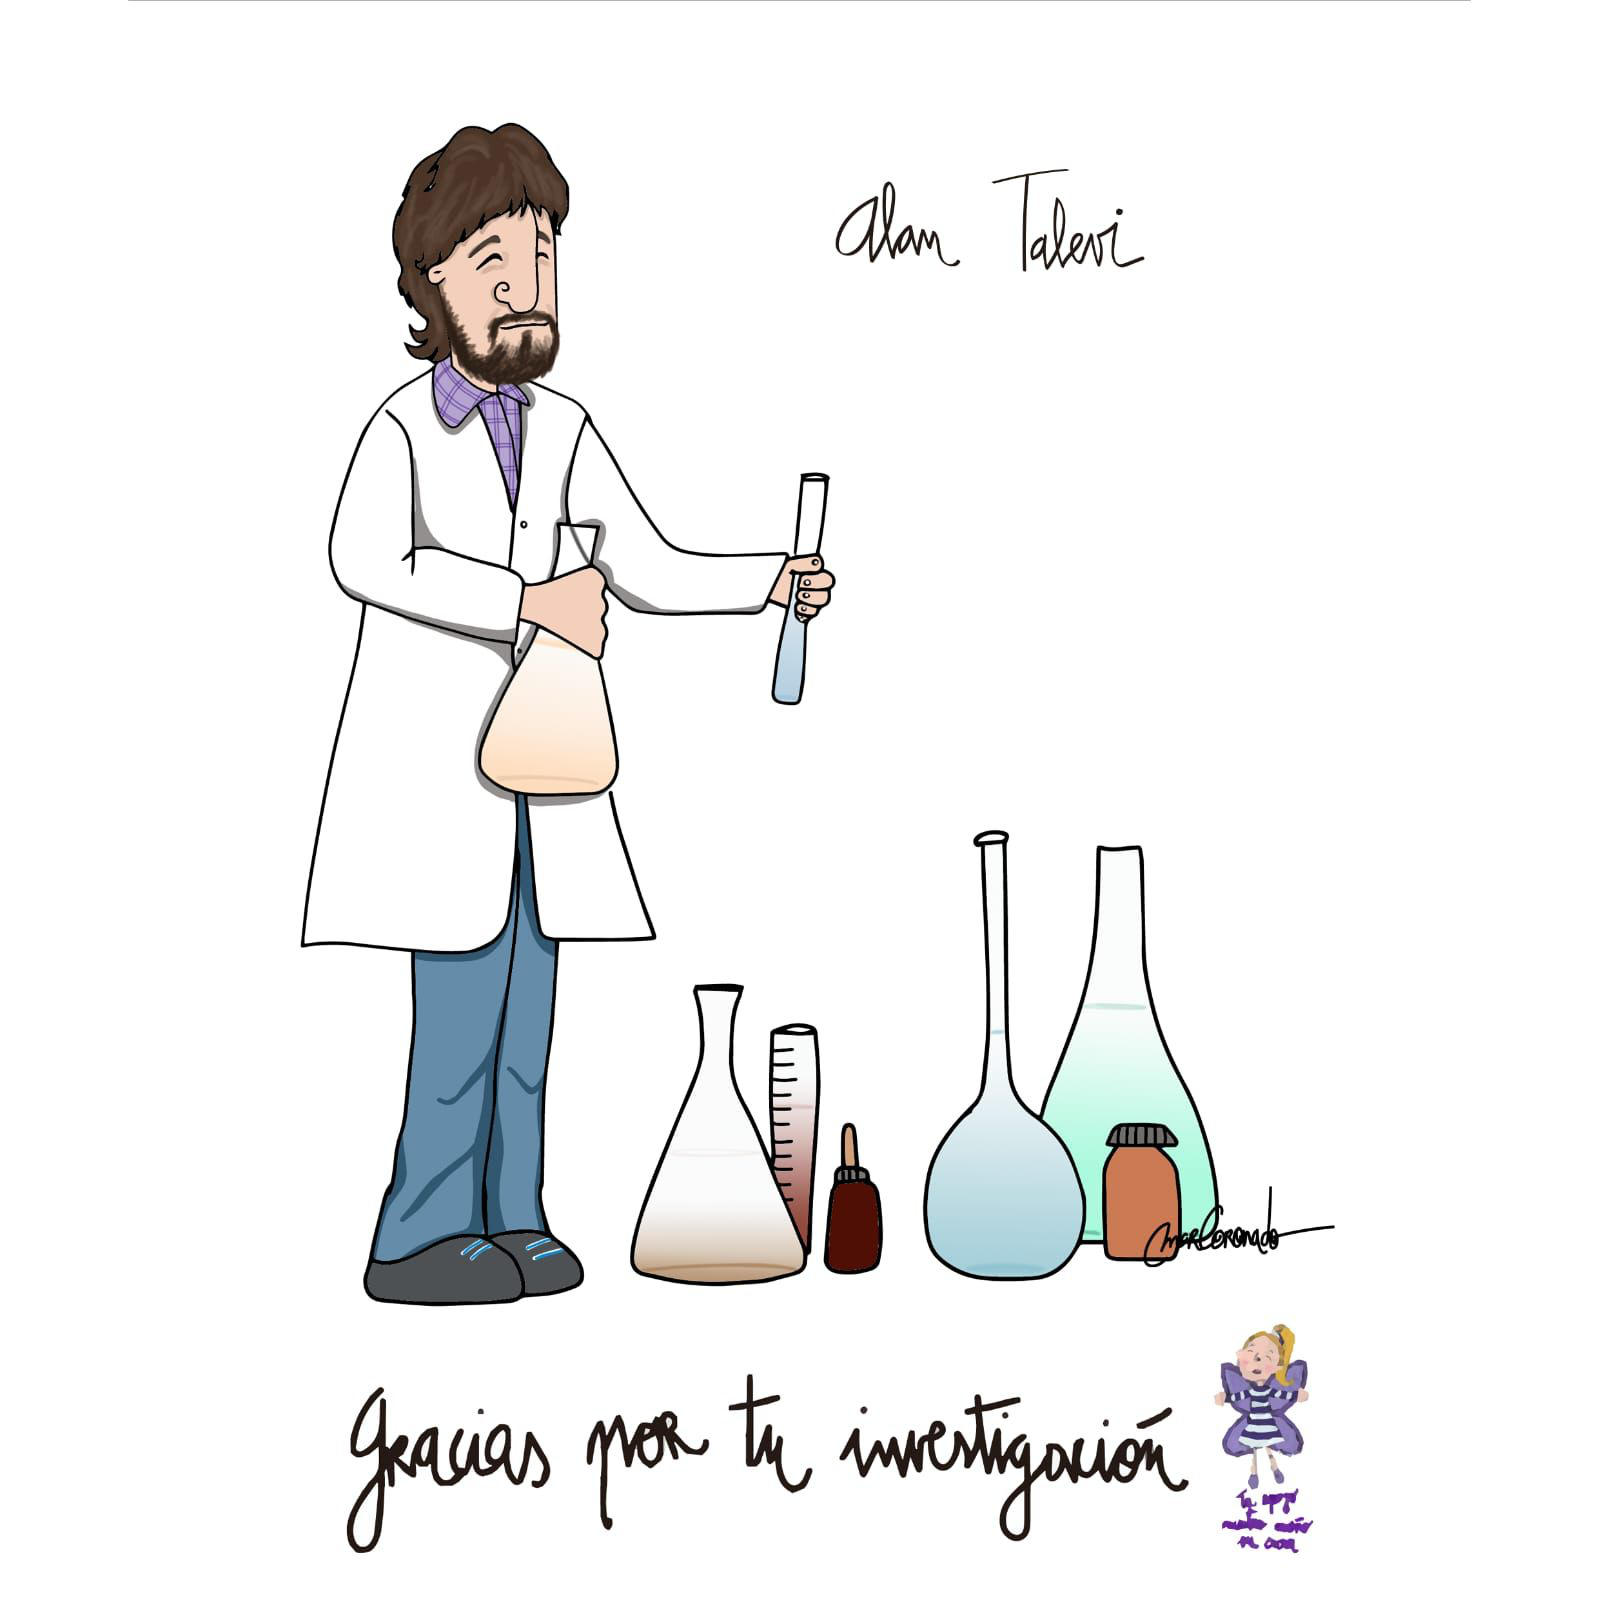 Alan Talevi
MarCoronado
Gracias por tu investigación